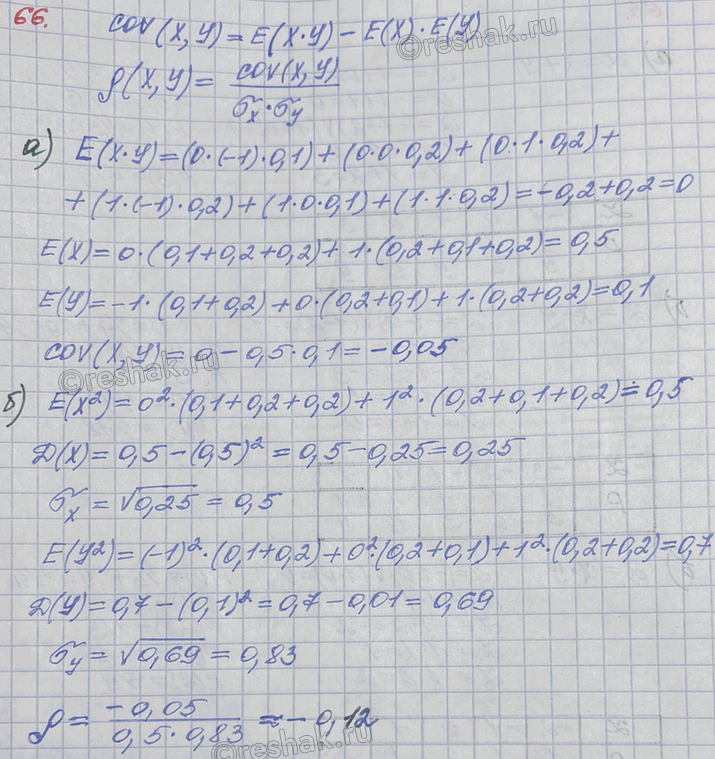 66. cov(X,Y) = E(X·Y) − E(X)·E(Y)
ρ(X,Y) = cov(X,Y) / σx·σy
а) E(X·Y) = (0·(-1)·0,1) + (0·0·0,2) + (0·1·0,2) +
+ (1·(-1)·0,2) + (1·0·0,1) + (1·1·0,2) = -0,2+0,2=0
E(X) = 0·(0,1+0,2+0,2) + 1·(0,2+0,1+0,2) = 0,5
E(Y) = -1·(0,1+0,2) + 0·(0,2+0,1) + 1·(0,2+0,2) = 0,1
cov(X,Y) = 0 − 0,5·0,1 = −0,05
б) E(X²) = 0²·(0,1+0,2+0,2) + 1²·(0,2+0,1+0,2) = 0,5
D(X) = 0,5 − (0,5)² = 0,5 − 0,25 = 0,25
σx = √0,25 = 0,5
E(Y²) = (-1)²·(0,1+0,2) + 0²·(0,2+0,1) + 1²·(0,2+0,2) = 0,7
D(Y) = 0,7 − (0,1)² = 0,7 − 0,01 = 0,69
σy = √0,69 = 0,83
ρ = −0,05 / 0,5·0,83 ≈ −0,12
©reshak.ru
©reshak.ru
©reshak.ru
©reshak.ru